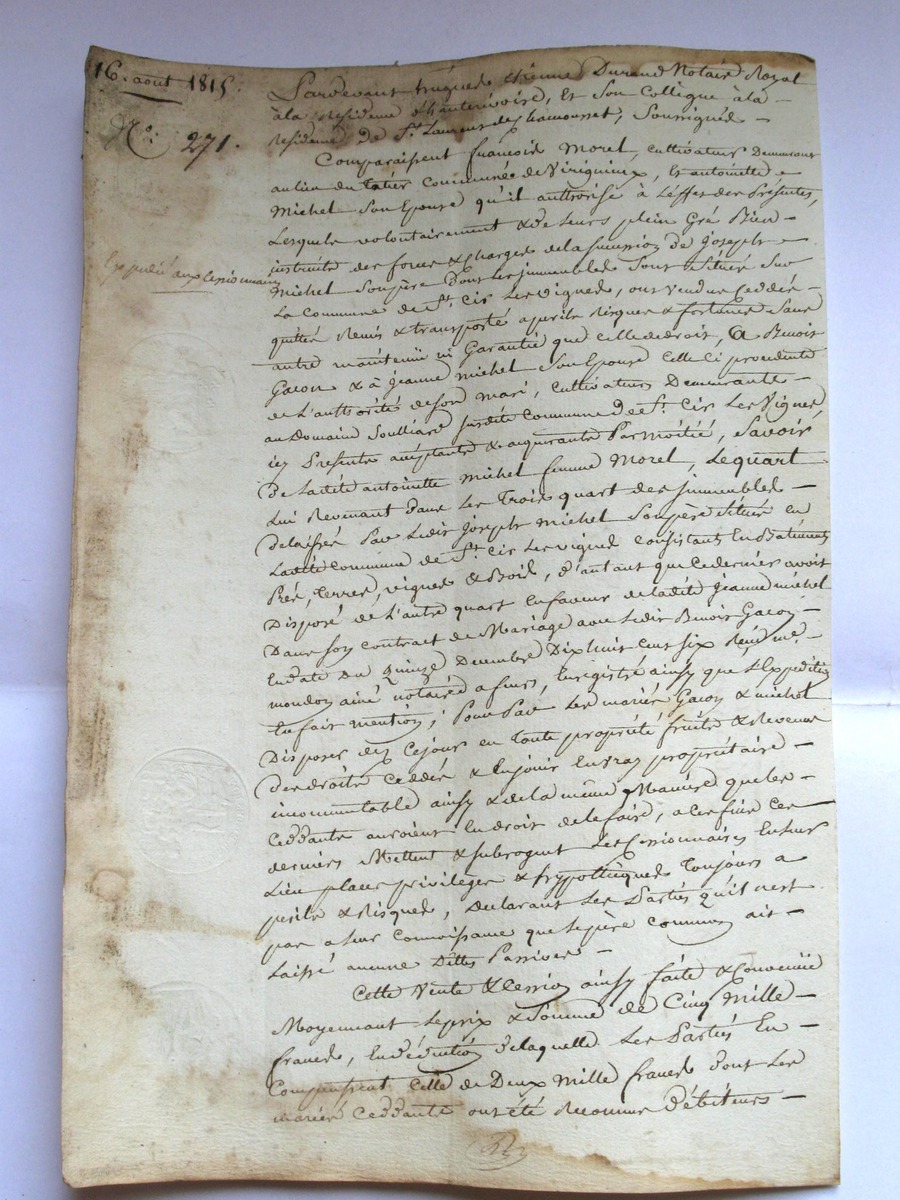 16. août 1815.
N.o 271.
Expédié aux cessionnaires
Pardevant Etienne Durand Notaire Royal
à la residence d'hauterivoire, Et son Collègue à la –
residence de St. Laurent de Chamousset, soussignés –
Comparaissent françois Morel, cultivateur Demeurant
au lieu du commune de Virigneux, Et antoinette
Michel Son Epouse qu'il authorise à L'éffet des Présentes,
Lesquels volontairement & de leurs plein Gré Bien –
instruits des forces & charges de la succession de joseph
Michel Son père Dont les jmmeubles Sont Situés Sur
La Commune de St. Cir Les vignes, ont vendu Ceddé –
quitté Remis & transporté à perils Risques & fortunes Sans
autre maintenüe ni Garantie que celle de droit, à Benoit
Gacon & à jeanne michel Son Epouse Celle ci procedente
de L'authorité de son mari, cultivateurs Demeurants –
au Domaine Soulliard Susdite Commune de St. Cir Les Vignes
ici Presents acceptants & acquerants Par moitié, Savoir
De Ladite antoinette michel femme Morel, Le quart
Lui Revenant Dans Les Trois quart des jmmeubles –
Delaissés Par Ledit joseph Michel Son père Situés en
Ladite Commune de St. Cir Les vignes consistants En Batiments
Prés, terres, vignes & Bois, D'autant que ce dernier avoit
Disposé de L'autre quart En faveur de ladite jeanne michel
Dans son contract de Mariage avec Ledit Benoit Gacon –
En date Du Quinze Decembre Dix huit cent six Reçu me.
mondon ainé notaire à feurs, Enregistré ainsy que L'expedition
En fait mention; Pour Par Les mariés Gacon & michel
Disposer dès Cejour en toute propriété fruits & Revenus
Des droits Ceddés & En jouir En vray propriétaire –
incommutable ainsy & de la même Manière que les –
Ceddants auroient En droit de le faire, à ces fins Ces
derniers Mettent & subrogent Les Cessionnaires En leur
Lieu place privilèges & hyppothèques Toujours à
perils & Risques, Declarant Les Parties qu'il n'est
pas à leur Connoissance que le père commun ait –
Laissé aucune Dettes Passives –
Cette Vente & Cession ainsy faite & Convenüe
Moyennant Le prix & Somme De Cinq Mille –
francs, En déduction de laquelle Les Parties En –
Compensent Celle de Deux Mille francs dont Les
mariés Ceddants ont été Reconnus Débiteurs –